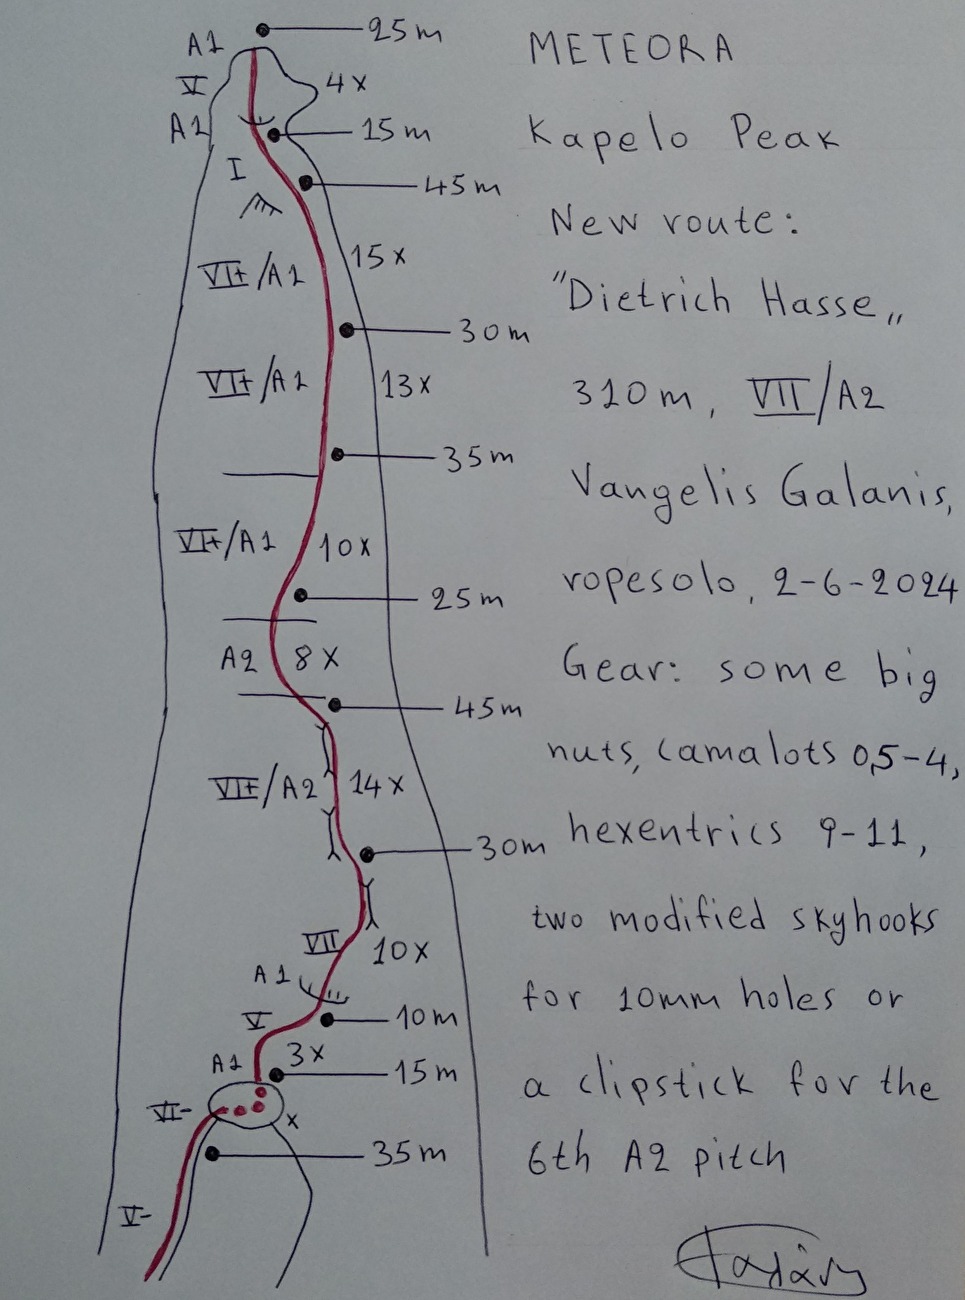 25m
A1
V
4x
A1
15m
I
45m
15x
VI+/A1
30m
VI+/A1
13x
35m
VI+/A1
10x
25m
A2
8x
45m
VI+/A2
14x
30m
VII
10x
A1
V
10m
A1
3x
15m
VI-
x
35m
V-
METEORA
Kapelo Peak
New route:
"Dietrich Hasse„
310m, VII/A2
Vangelis Galanis,
ropesolo, 2-6-2024
Gear: some big
nuts, camalots 0,5-4,
hexentrics 9-11,
two modified skyhooks
for 10mm holes or
a clipstick for the
6th A2 pitch